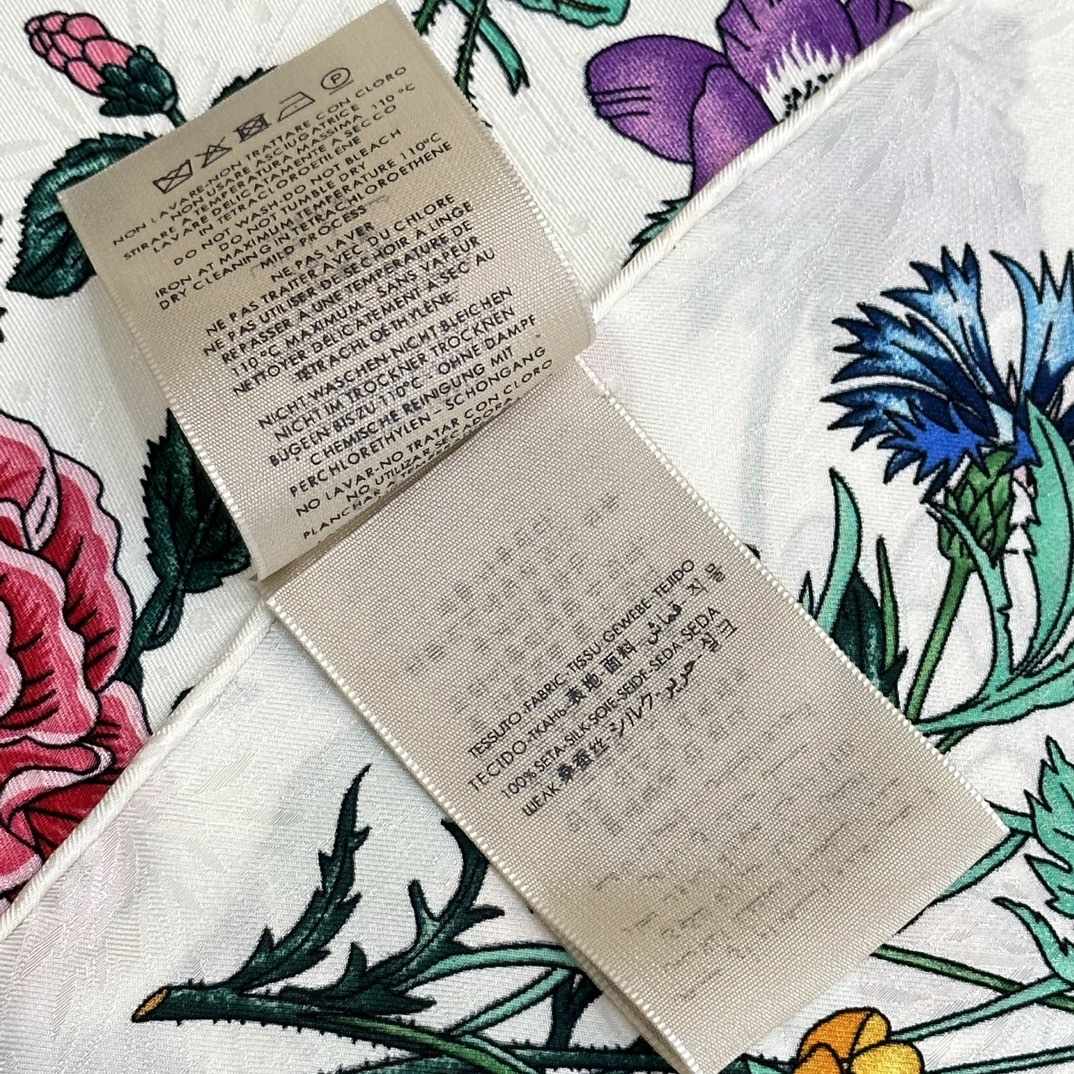 P
NON LAVARE-NON TRATTARE CON CLORO
NON USARE ASCIUGATRICE
STIRARE A TEMPERATURA MASSIMA 110 °C
LAVARE DELICATAMENTE A SECCO
IN TETRACLOROETILENE
DO NOT WASH-DO NOT BLEACH
DO NOT TUMBLE DRY
IRON AT MAXIMUM TEMPERATURE 110°C
DRY CLEANING IN TETRACHLOROETHENE
MILD PROCESS
NE PAS LAVER
NE PAS TRAITER AVEC DU CHLORE
NE PAS UTILISER DE SÉCHOIR À LINGE
REPASSER À UNE TEMPERATURE DE
110 °C MAXIMUM – SANS VAPEUR
NETTOYER DÉLICATEMENT À SEC AU
TÉTRACHLOÉTHYLÈNE
NICHT WASCHEN-NICHT BLEICHEN
NICHT IM TROCKNER TROCKNEN
BÜGELN BIS ZU 110°C - OHNE DAMPF
CHEMISCHE REINIGUNG MIT
PERCHLORETHYLEN – SCHONGANG
NO LAVAR-NO TRATAR CON CLORO
NO UTILIZAR SECADORA
PLANCHAR A
TESSUTO-FABRIC-TISSU-GEWEBE-TEJIDO
TECIDO-ТКАНЬ-表地-面料-قماش-직물
100% SETA-SILK-SOIE-SEIDE-SEDA-SEDA
ШЕЛК-桑蚕丝-シルク-حرير-실크